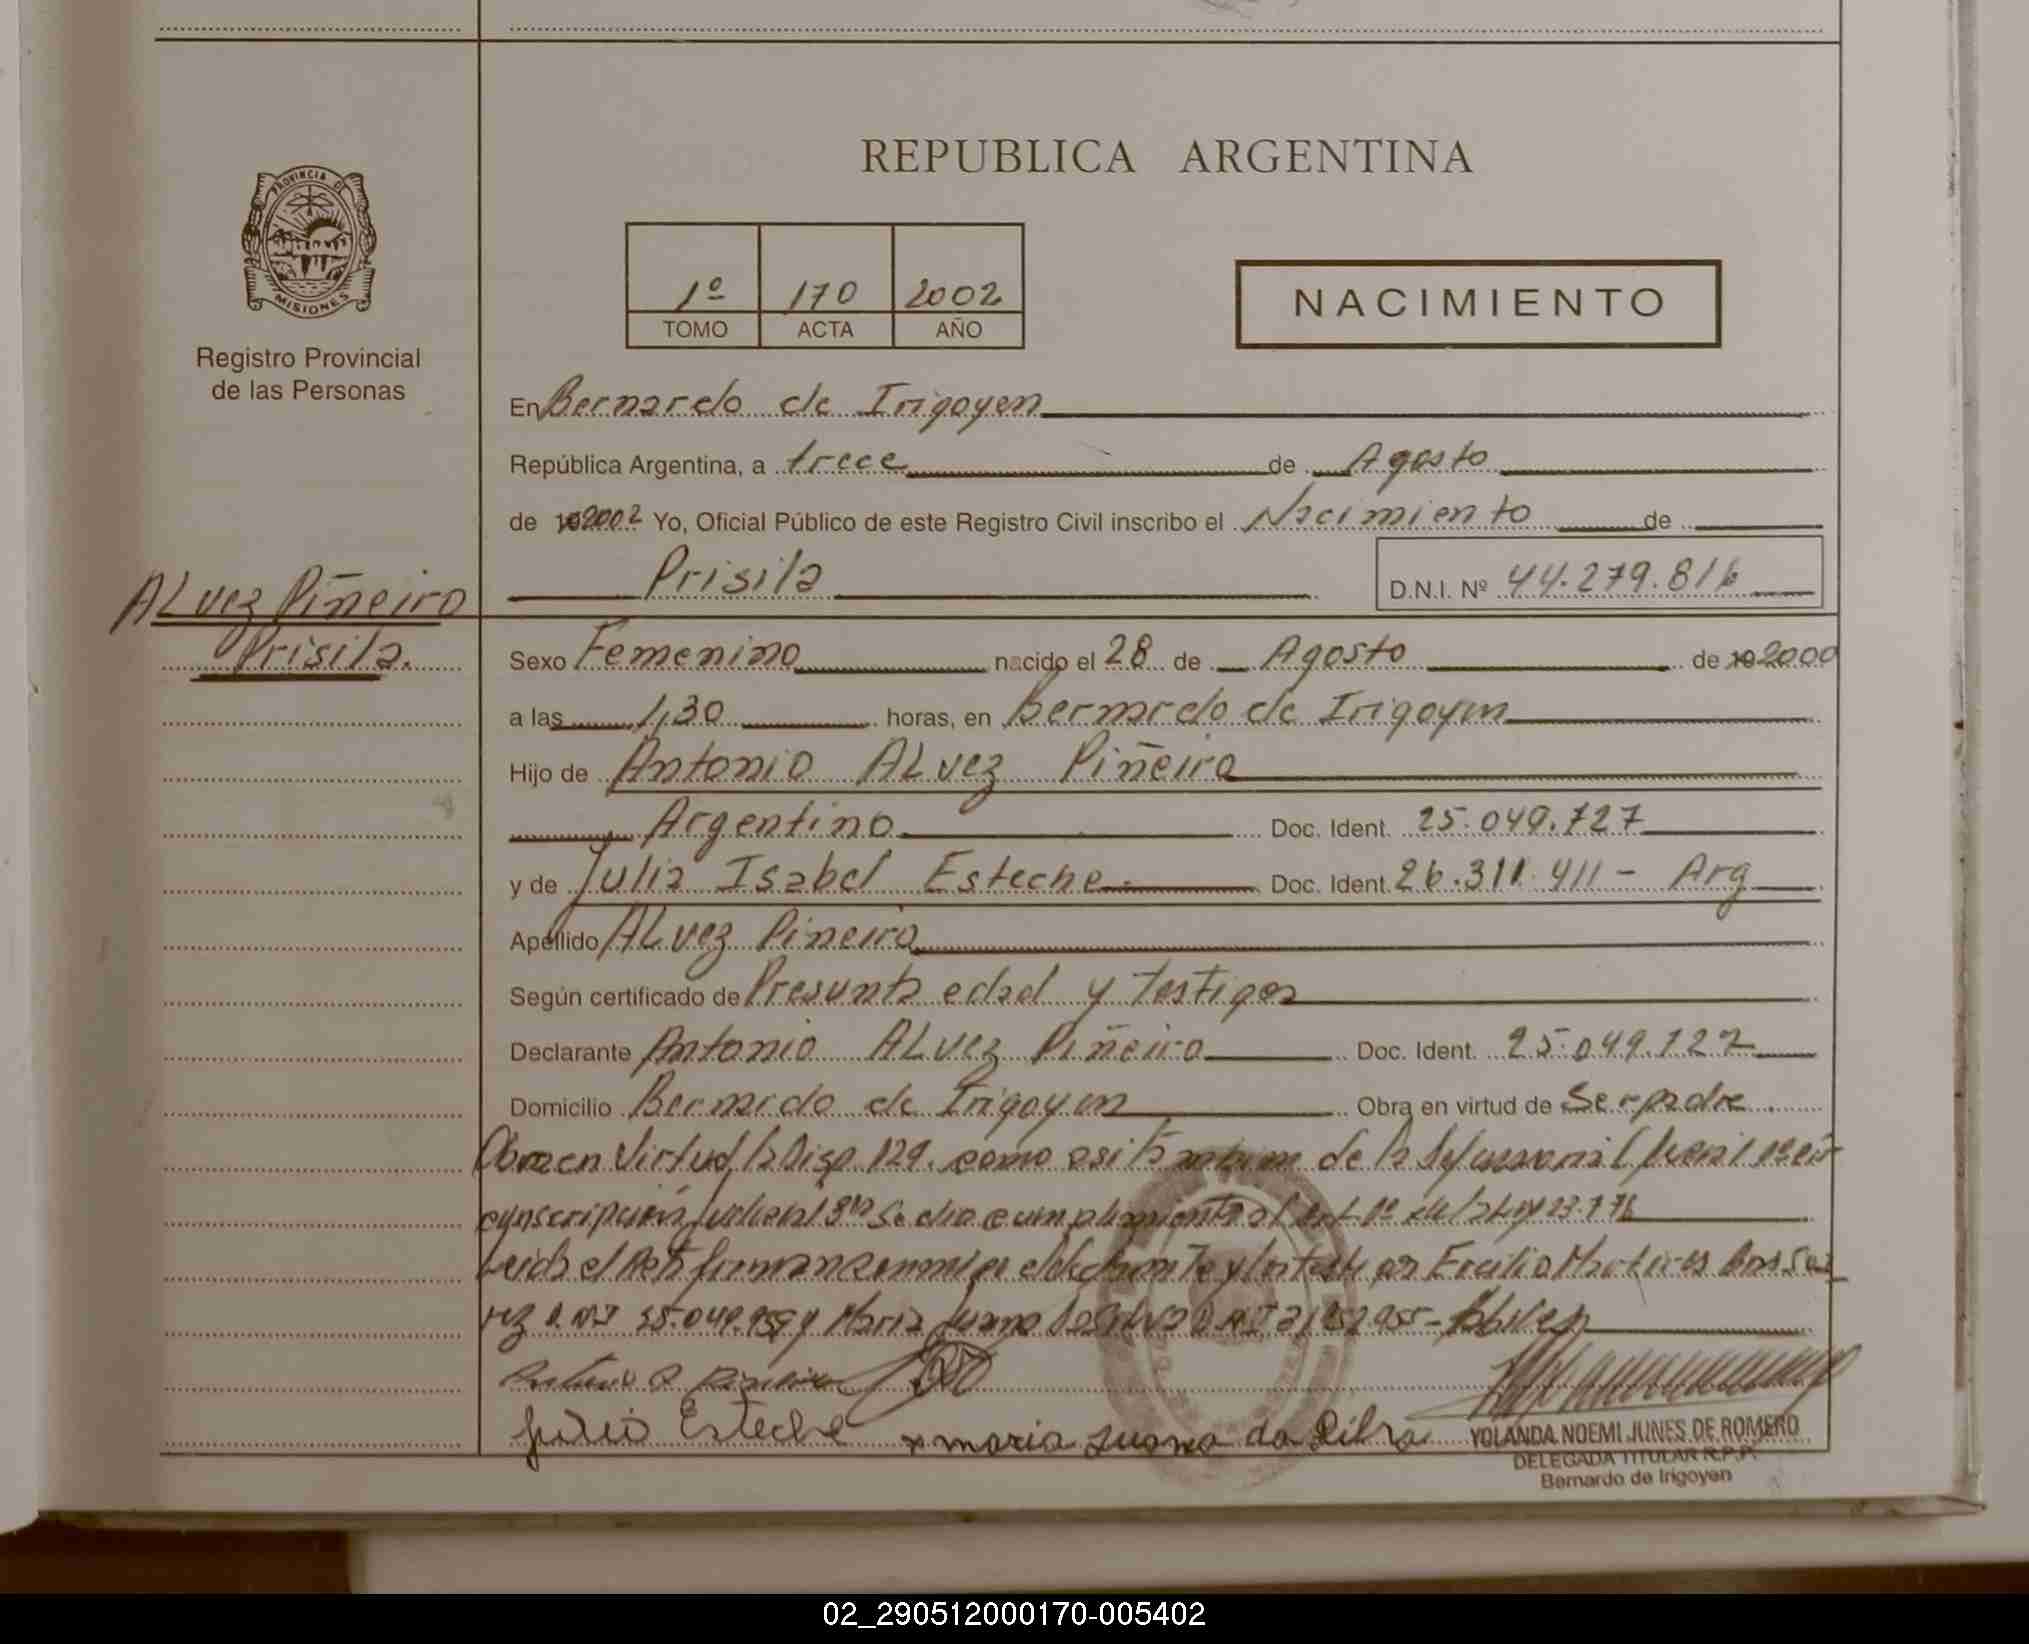 REPUBLICA ARGENTINA
PROVINCIA DE MISIONES
Registro Provincial
de las Personas
1º 170 2002
TOMO ACTA AÑO
NACIMIENTO
En Bernardo de Irigoyen
República Argentina, a trece de Agosto
de 2002 Yo, Oficial Público de este Registro Civil inscribo el Nacimiento de
Prisila D.N.I. Nº 44.279.816
ALvez Piñeiro
Prisila.
Sexo Femenino nacido el 28 de Agosto de 2000
a las 1,30 horas, en Bernardo de Irigoyen
Hijo de Antonio ALvez Piñeiro
Argentino Doc. Ident. 25.049.727
y de Julia Isabel Esteche Doc. Ident. 26.311.411 - Arg
Apellido ALvez Piñeiro
Según certificado de Presunta edad y testigos
Declarante Antonio ALvez Piñeiro Doc. Ident. 25.049.727
Domicilio Bernardo de Irigoyen Obra en virtud de Ser padre
Obra en Virtud la Disp 129. como asi de la
Judicial 3ra Se dio cumplimiento al Art 1º de la Ley
Leida el Acta firman conmigo el declarante y los testigos
D.N.I y Maria Juana Da Silva
Julia Esteche maria Juana da Silva
YOLANDA NOEMI JUNES DE ROMERO
DELEGADA TITULAR R.P.P.
Bernardo de Irigoyen
02_290512000170-005402